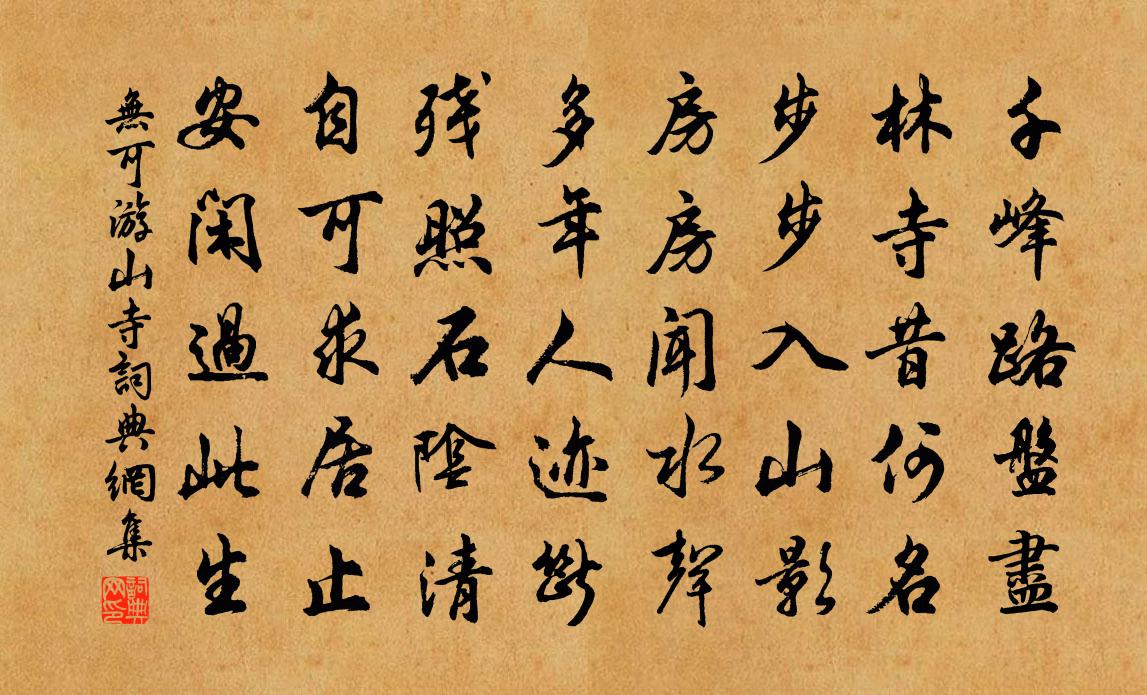 千峰路盤盡
林寺昔何名
步步入山影
房房聞水聲
多年人迹斷
残照石陰清
自可求居止
安閑過此生
無可游山寺詞典網集
詞典网印